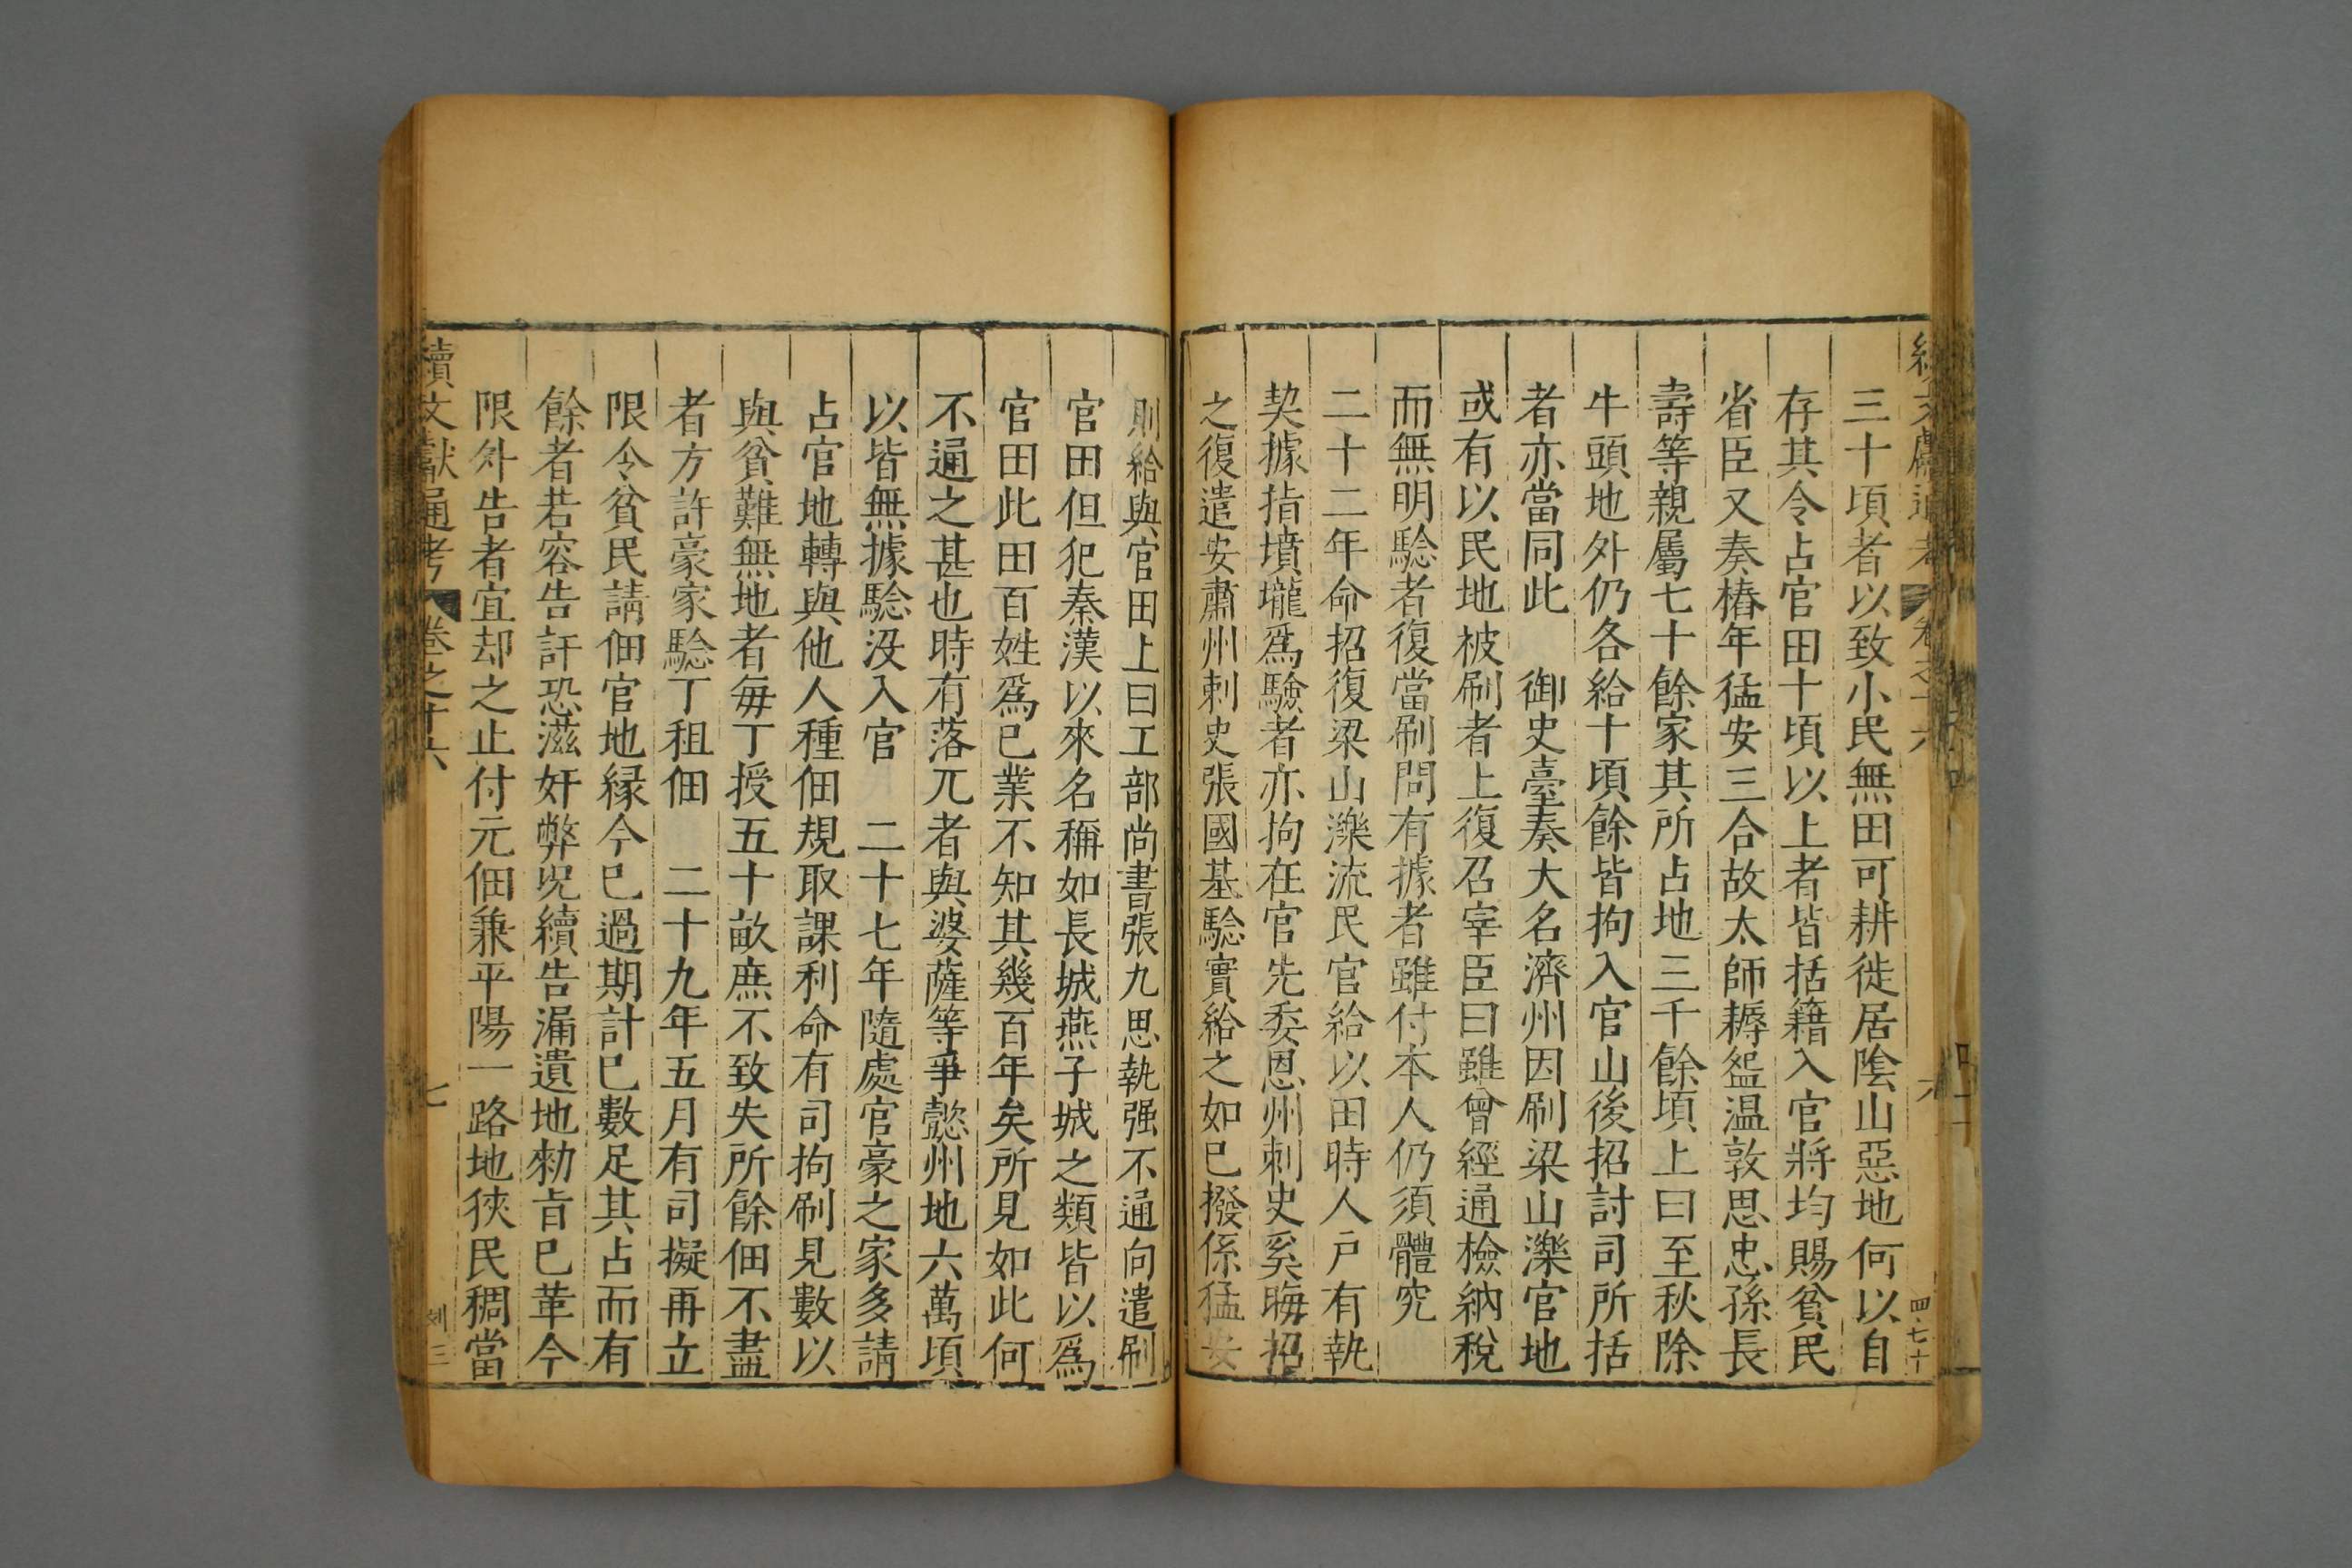 三十頃者以致小民無田可耕徙居陰山惡地何以自
存其令占官田十頃以上者皆括籍入官將均賜貧民
省臣又奏椿年猛安三合故太師耨盌温敦思忠孫長
壽等親屬七十餘家其所占地三千餘頃上曰至秋除
牛頭地外仍各給十頃餘皆拘入官山後招討司所括
者亦當同此　御史臺奏大名濟州因刷梁山濼官地
或有以民地被刷者上復召宰臣曰雖曾經通檢納稅
而無明騐者復當刷問有據者雖付本人仍須體究
二十二年命招復梁山濼流民官給以田時人戶有執
契據指墳壠爲驗者亦拘在官先委恩州刺史奚晦招
之復遣安肅州刺史張國基騐實給之如已撥係猛安
則給與官田上曰工部尚書張九思執强不通向遣刷
官田但犯秦漢以來名稱如長城燕子城之類皆以爲
官田此田百姓爲已業不知其幾百年矣所見如此何
不通之甚也時有落兀者與婆薩等爭懿州地六萬頃
以皆無據騐沒入官　二十七年隨處官豪之家多請
占官地轉與他人種佃規取課利命有司拘刷見數以
與貧難無地者每丁授五十畝庶不致失所餘佃不盡
者方許豪家騐丁租佃　二十九年五月有司擬再立
限令貧民請佃官地縁今已過期計已數足其占而有
餘者若容告訐恐滋奸弊况續告漏遺地勑旨已革今
限外告者宜却之止付元佃兼平陽一路地狹民稠當
續文獻通考　卷之十六　七